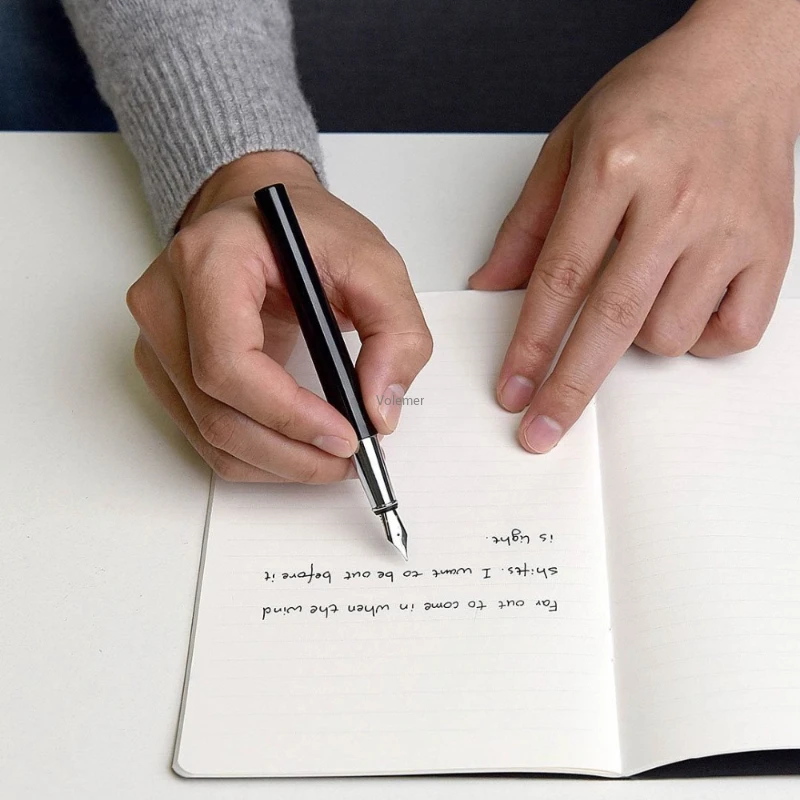 Far out to come in when the wind
shifts. I want to be out before it
is light.
Volemer